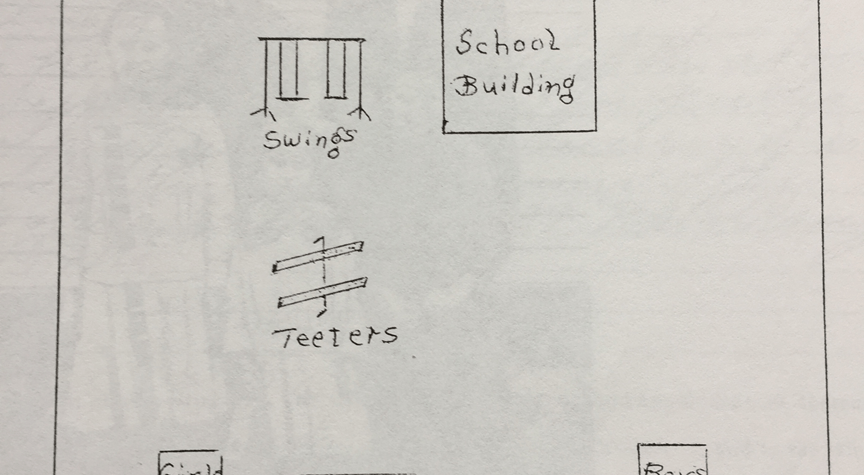 School
Building
Swings
Teeters